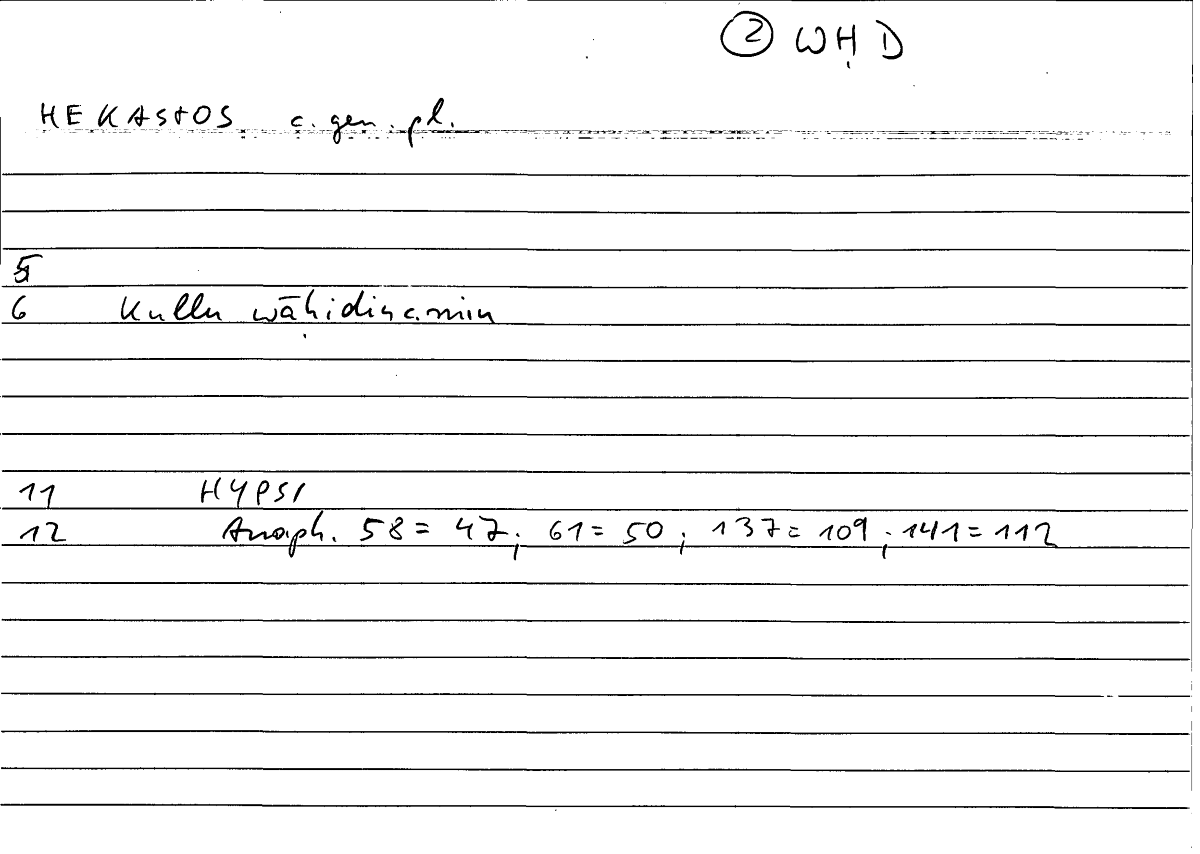 ② WḤD
HEKASTOS c. gen. pl.
5
6 Kullu wāḥidin c. min
11 HYPSI
12 Anaph. 58 = 47; 61 = 50; 137 = 109; 141 = 112